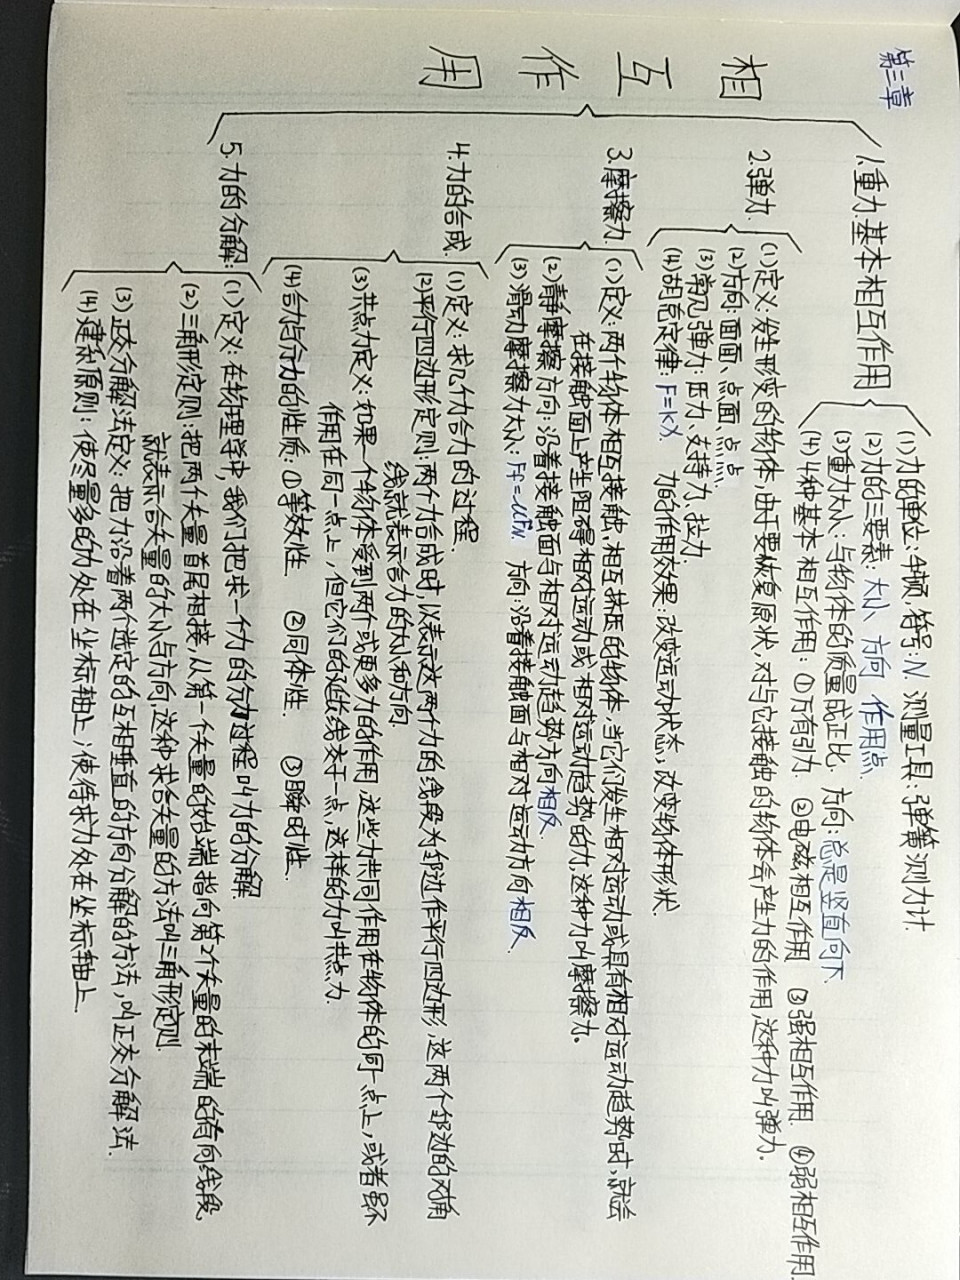 第三章
相互作用
1.重力基本相互作用
(1)力的单位:牛顿,符号:N 测量工具:弹簧测力计.
(2)力的三要素:大小 方向 作用点.
(3)重力大小:与物体的质量成正比. 方向:总是竖直向下.
(4)4种基本相互作用:①万有引力 ②电磁相互作用 ③强相互作用. ④弱相互作用.
2.弹力.
(1)定义:发生形变的物体,由于要恢复原状,对与它接触的物体会产生力的作用,这种力叫弹力.
(2)方向:面面、点面、点点.
(3)常见弹力:压力、支持力、拉力.
(4)胡克定律:F=KX. 力的作用效果:改变运动状态,改变物体形状.
3.摩擦力.
(1)定义:两个物体相互接触,相互挤压的物体,当它们发生相对运动或具有相对运动趋势时,就会
在接触面上产生阻碍相对运动或相对运动趋势的力,这种力叫摩擦力。
(2)静摩擦方向:沿着接触面与相对运动趋势方向相反.
(3)滑动摩擦力大小:Ff=μFN. 方向:沿着接触面与相对运动方向相反.
4.力的合成.
(1)定义:求几个力合力的过程.
(2)平行四边形定则:两个力合成时,以表示这两个力的线段为邻边作平行四边形,这两个邻边的对角
线就表示合力的大小和方向.
(3)共点力定义:如果一个物体受到两个或更多力的作用,这些力共同作用在物体的同一点上,或者虽不
作用在同一点上,但它们的延长线交于一点,这样的力叫共点力.
(4)合力与分力的性质:①等效性. ②同体性. ③瞬时性.
5.力的分解:
(1)定义:在物理学中,我们把求一个力的分力过程叫力的分解.
(2)三角形定则:把两个矢量首尾相接,从第一个矢量的始端指向第2个矢量的末端的有向线段,
就表示合矢量的大小与方向,这种求合矢量的方法叫三角形定则.
(3)正交分解法定义:把力沿着两个选定的互相垂直的方向分解的方法,叫正交分解法.
(4)建系原则:使尽量多的力处在坐标轴上;使待求力处在坐标轴上.